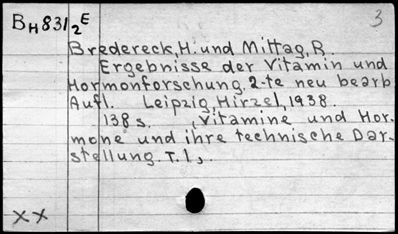 BH831₂E
3
Bredereck, H. und Mittag, R.
Ergebnisse der Vitamin und
Hormonforschung. 2-te neu bearb
Aufl. Leipzig, Hirzel, 1938.
138 s. , Vitamine und Hor-
mone und ihre technische Dar-
stellung. T.1,.
XX